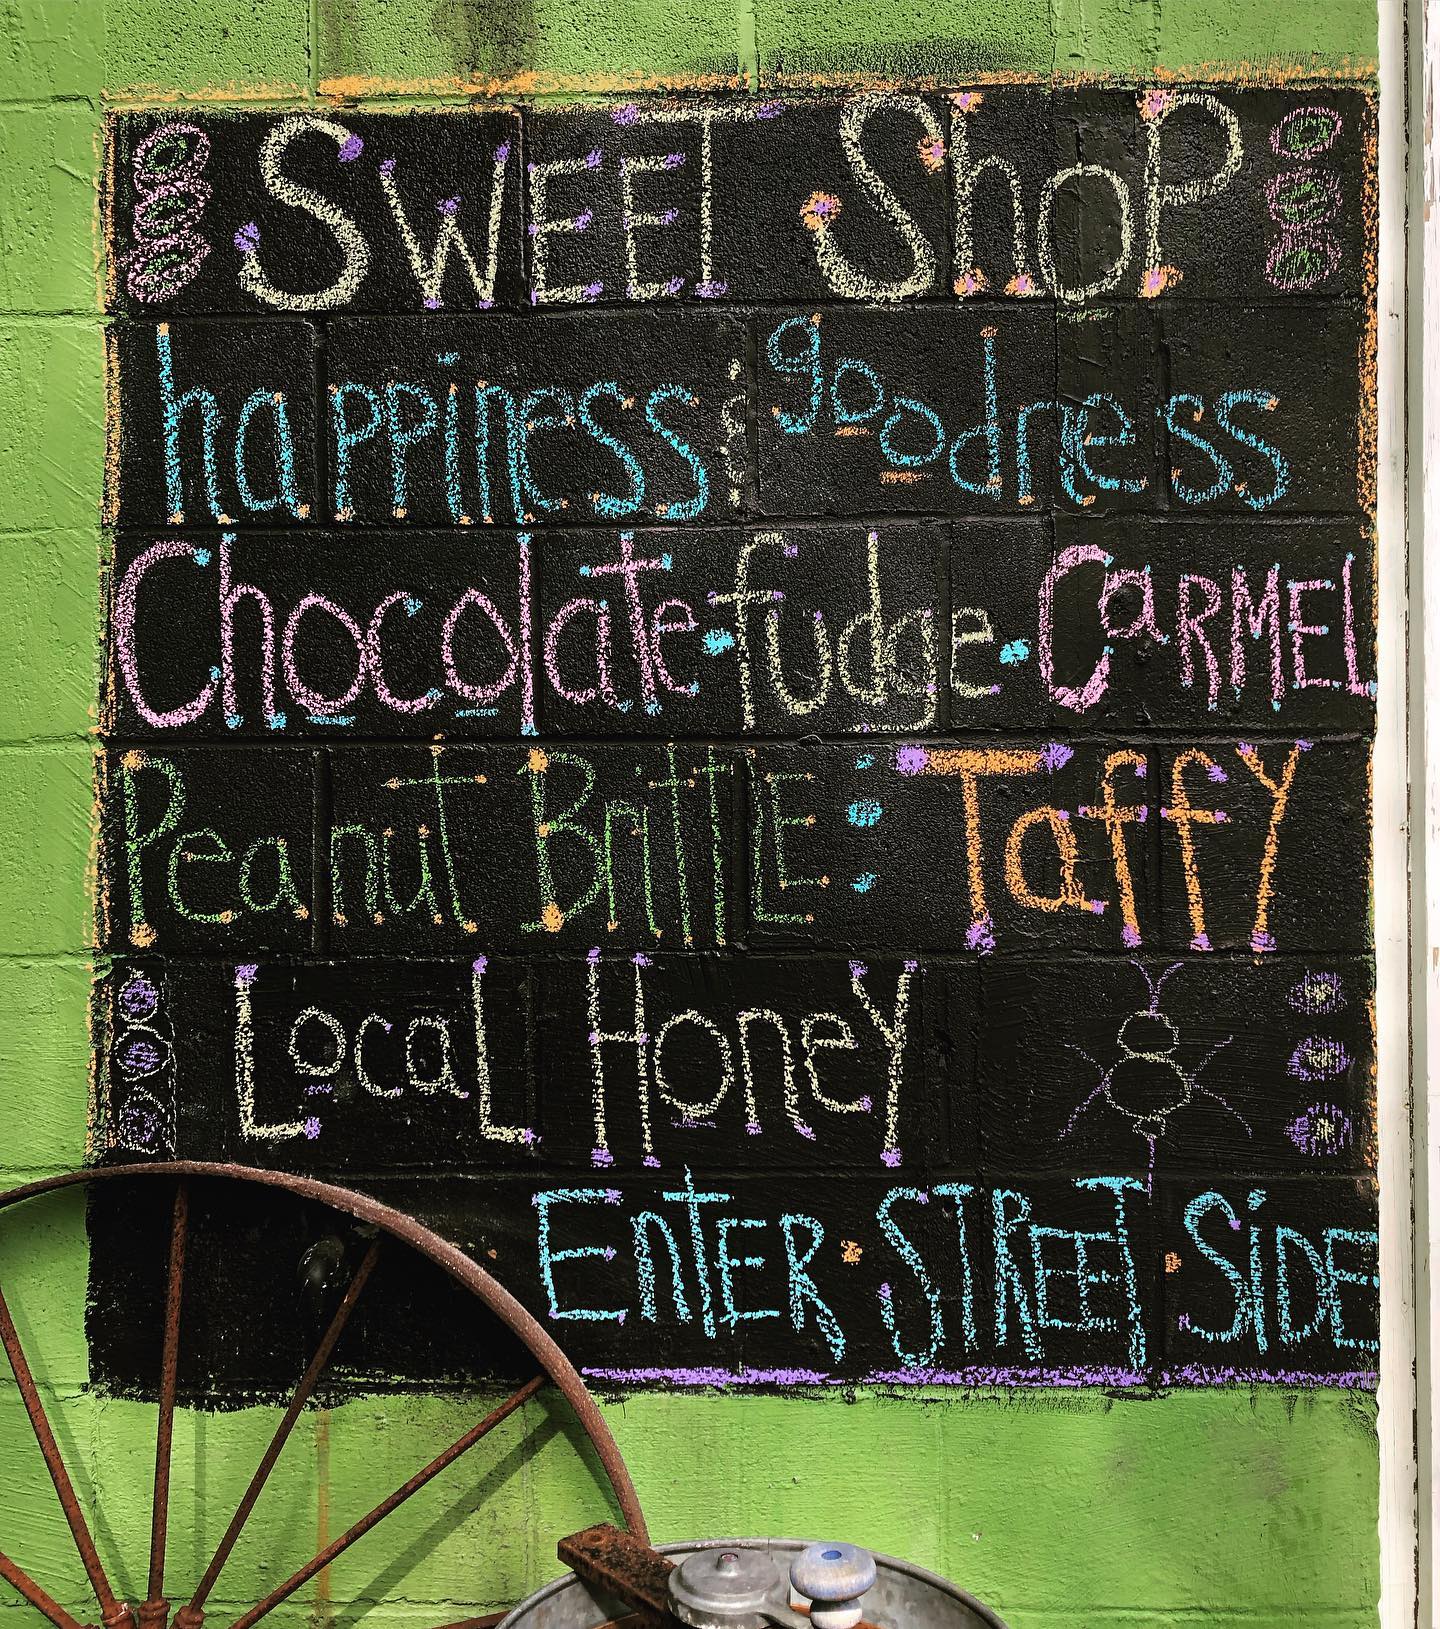 SWEET ShoP
happiness & goodness
Chocolate · fudge · CaRMEL
Peanut BrittlE : Taffy
LocaL HoneY
EnTER · STREET · SiDE